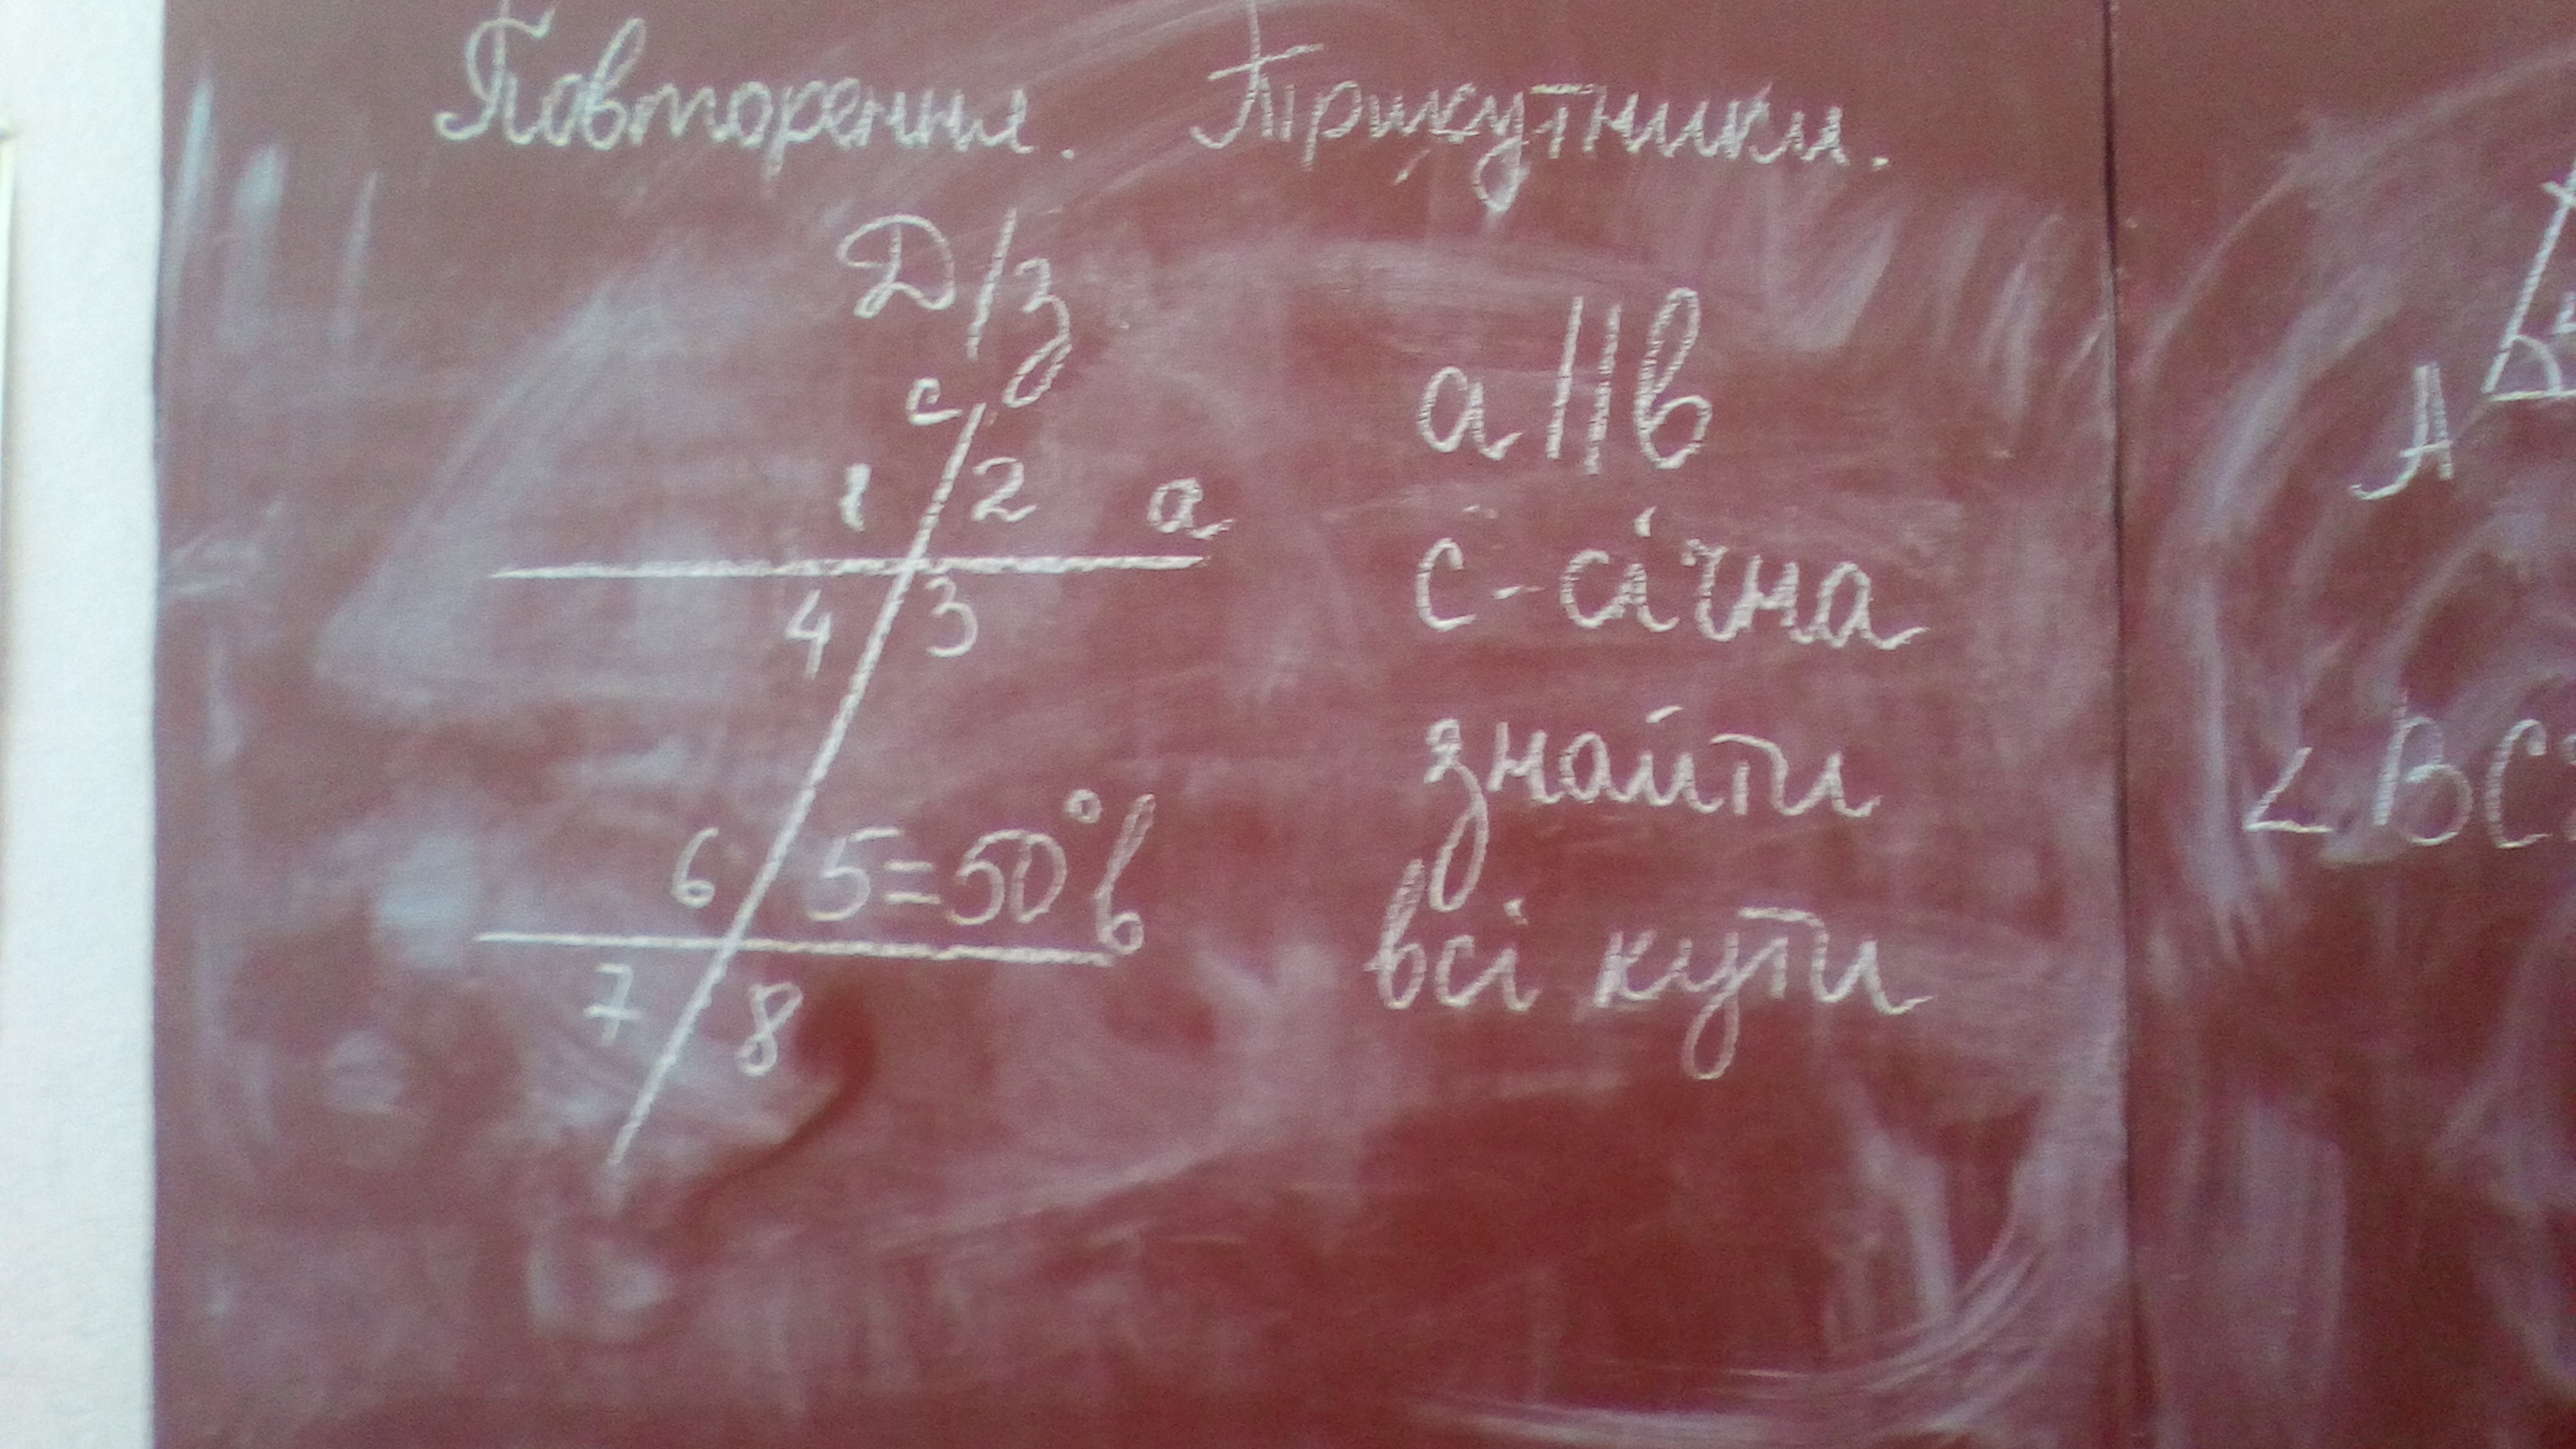 Повторення. Трикутники.
Д/з
c
1 2 a
4 3
6 5=50° b
7 8
a || b
c - січна
знайти
всі кути
A
∠ВС